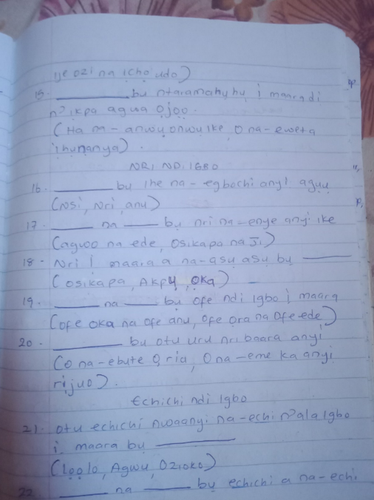 ije ozi na icho udo)
15. ________ bu ntaramahuhu i maara di
n'ikpa agwa ojoo.
(Ha m-anwu onwu ike, O na-eweta
ihunanya).
NRI NDI IGBO
16. ________ bu ihe na-egbochi anyi aguu
(Nsi, Nri, anu)
17. ______ na ______ bu nri na-enye anyi ike
(agwa na ede, Osikapa na Ji)
18. Nri i maara a na-asu asu by ______
(Osikapa, Akpu, Oka)
19. ______ na ______ bu ofe ndi Igbo i maara
(Ofe oka na ofe anu, ofe ora na ofe ede)
20. ________ bu otu uru nri baara anyi
(O na-ebute oria, O na-eme ka anyi
rijuo).
Echichi ndi Igbo
21. otu echichi nwaanyi na-echi n'ala Igbo
i maara bu ________
(Loolo, Agwu, Ozioko)
22. ______ na ______ bu echichi a na-echi